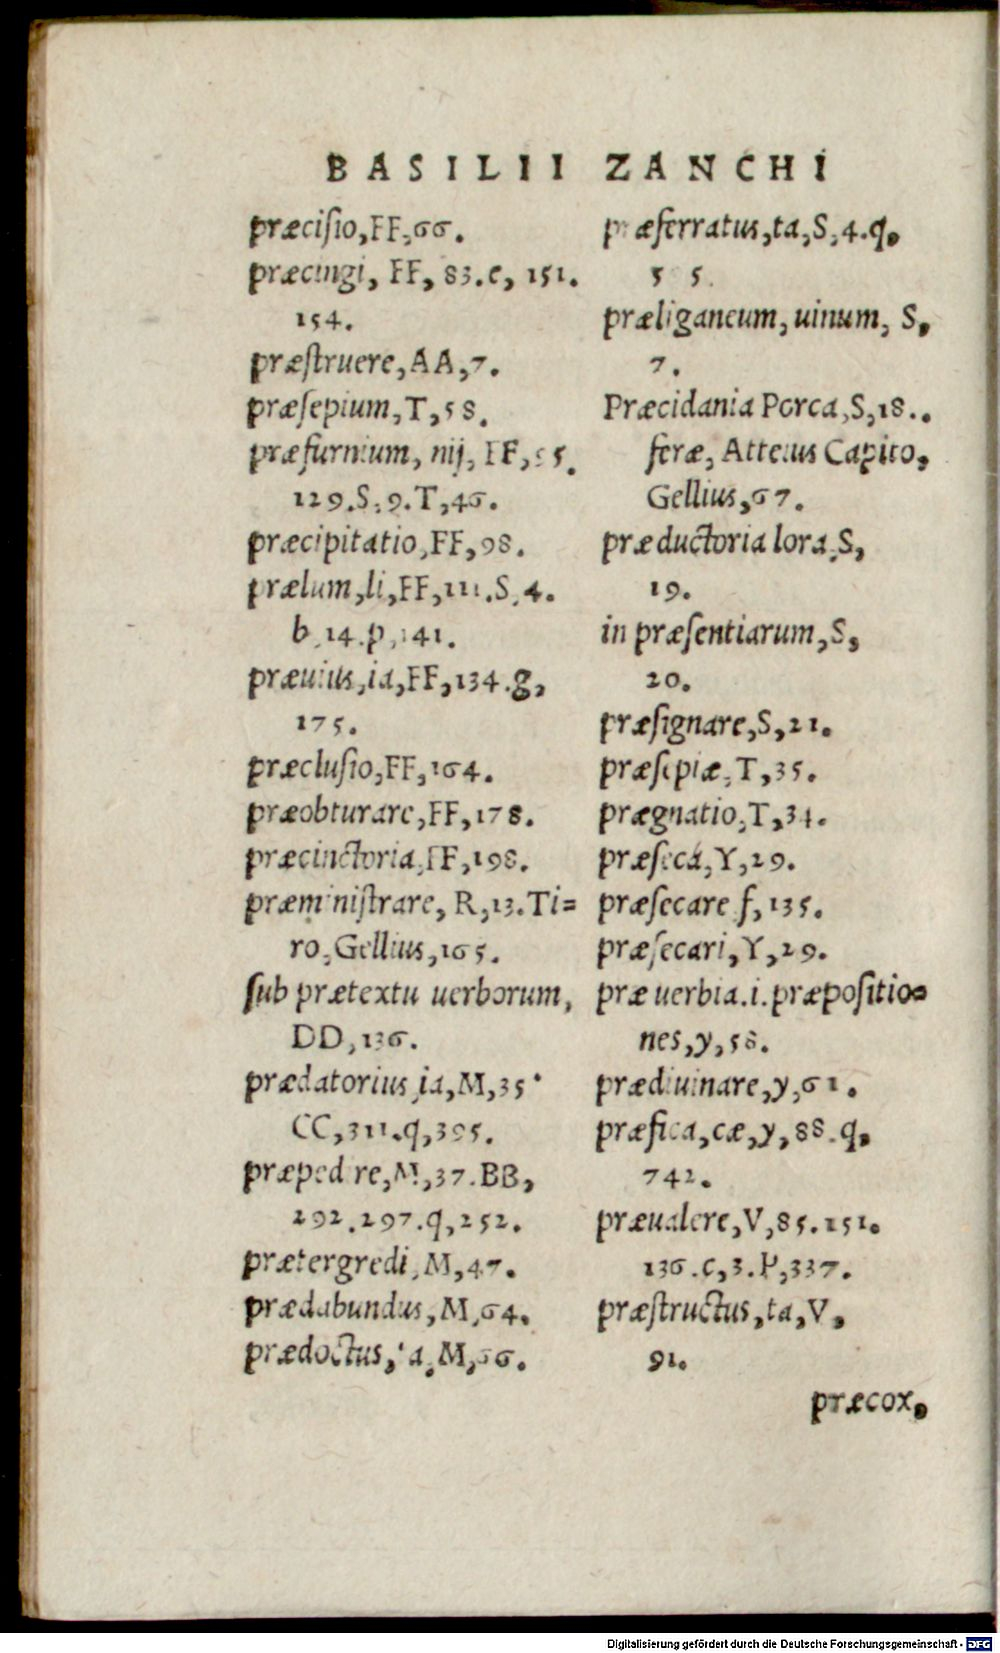 BASILII ZANCHI
præcisio, FF, 66.
præcingi, FF, 83.c, 151.
154.
præstruere, AA, 7.
præsepium, T, 58.
præfurnium, nij, FF,
129.S, 9.T, 46.
præcipitatio, FF, 98.
prælum, li, FF, 111.S, 4.
b, 14.p, 141.
præuius, ia, FF, 134.g,
175.
præclusio, FF, 164.
præobturare, FF, 178.
præcinctoria, FF, 198.
præministrare, R, 13. Ti=
ro, Gellius, 165.
sub prætextu uerborum,
DD, 136.
prædatorius, ia, M, 35.
CC, 311.q, 395.
præpedire, M, 37.BB,
292.297.q, 252.
prætergredi, M, 47.
prædabundus, M, 64.
prædoctus, ta, M, 66.
præferratus, ta, S, 4.q,
55.
præliganeum, uinum, S,
7.
Præcidania Porca, S, 18..
feræ, Atteius Capito,
Gellius, 67.
præductoria lora, S,
19.
in præsentiarum, S,
20.
præsignare, S, 21.
præsepiæ, T, 35.
prægnatio, T, 34.
præseca, Y, 29.
præsecare f, 135.
præsecari, Y, 29.
præuerbia.i. præpositio=
nes, y, 58.
prædiuinare, y, 61.
præfica, cæ, y, 88.q,
742.
præualere, V, 85.151.
136.c, 3.P, 337.
præstructus, ta, V,
91.
præcox,
Digitalisierung gefördert durch die Deutsche Forschungsgemeinschaft - DFG